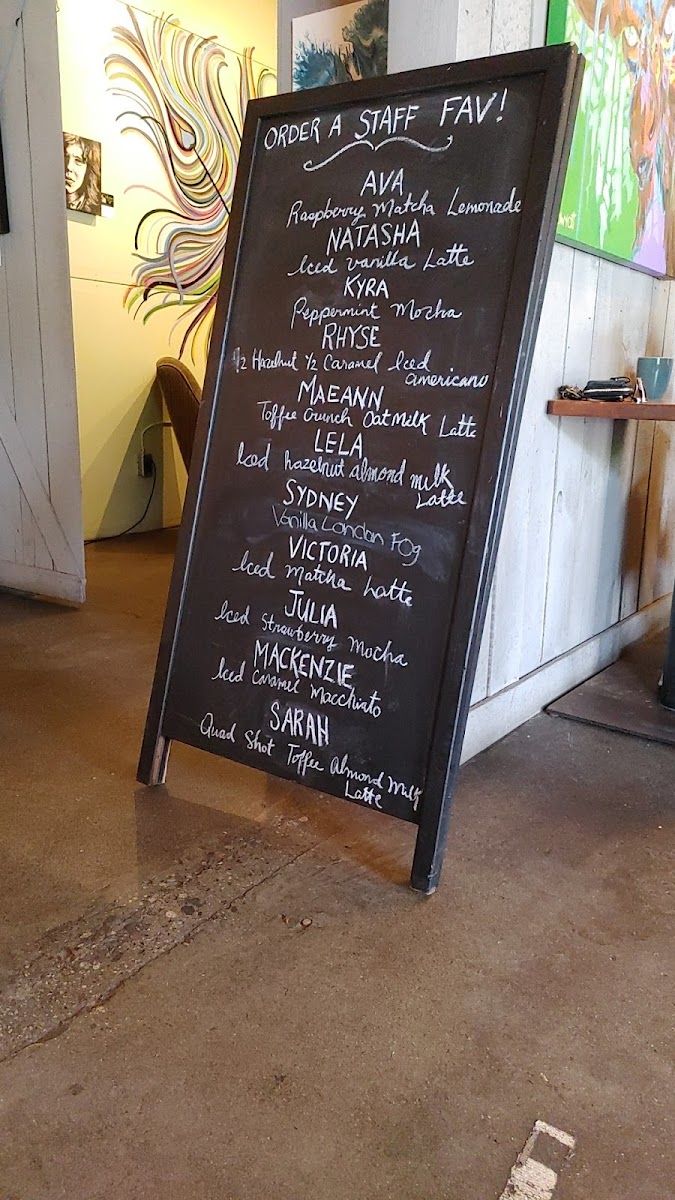 ORDER A STAFF FAV!
AVA
Raspberry Matcha Lemonade
NATASHA
Iced Vanilla Latte
KYRA
Peppermint Mocha
RHYSE
1/2 Hazelnut 1/2 Caramel Iced
americano
MAEANN
Toffee Crunch Oatmilk Latte
LELA
Iced hazelnut almond milk
Latte
SYDNEY
Vanilla London Fog
VICTORIA
Iced Matcha Latte
JULIA
Iced Strawberry Mocha
MACKENZIE
Iced Caramel Macchiato
SARAH
Quad Shot Toffee Almond Milk
Latte